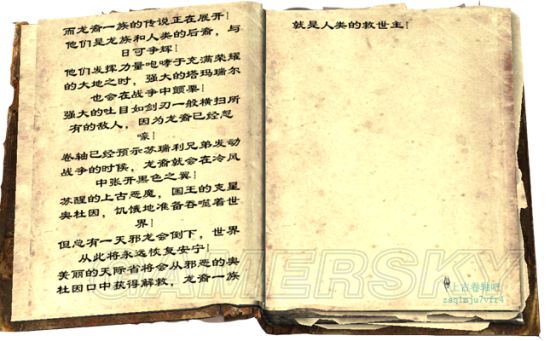 而龙裔一族的传说正在展开!
他们是龙族和人类的后裔，与
日可争辉!
他们发挥力量咆哮于充满荣耀
的大地之时，强大的塔玛瑞尔
也会在战争中颤栗!
强大的吐目如剑刃一般横扫所
有的敌人，因为龙裔已经怒
嚎!
卷轴已经预示苏瑞利兄弟发动
战争的时候，龙裔就会在冷风
中张开黑色之翼!
苏醒的上古恶魔，国王的克星
奥杜因，饥饿地准备吞噬着世
界!
但总有一天邪龙会倒下，世界
从此将永远恢复安宁!
美丽的天际省将会从邪恶的奥
杜因口中获得解救，龙裔一族
就是人类的救世主!
GAMERSKY
上古卷轴吧
zaq1mju7vfr4